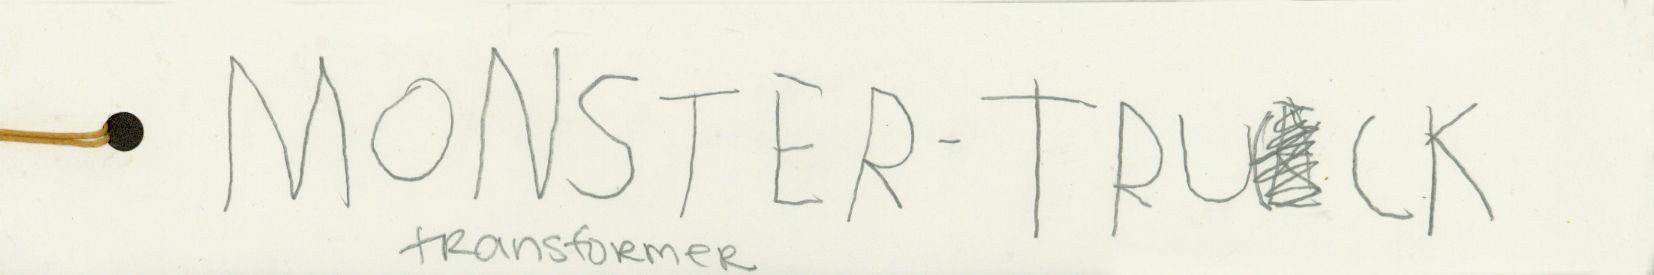 MONSTER-TRUCK
transformer